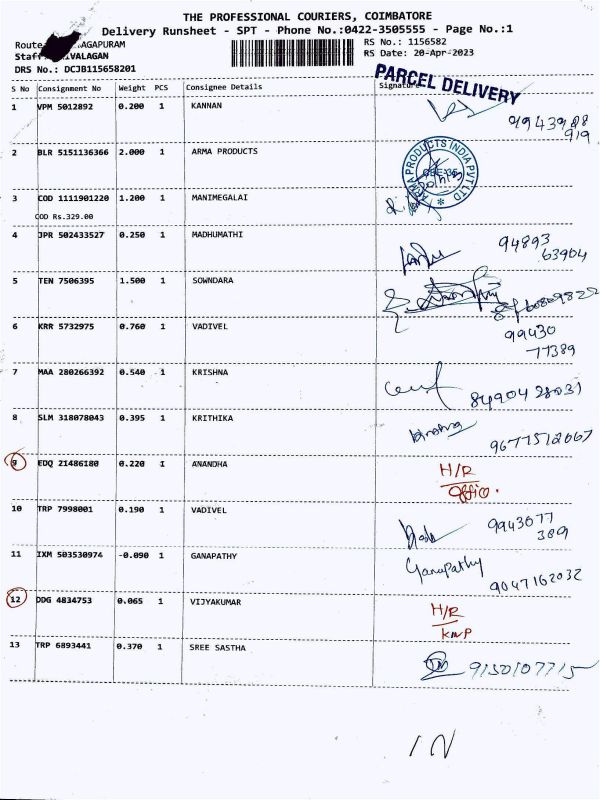 THE PROFESSIONAL COURIERS, COIMBATORE
Delivery Runsheet - SPT - Phone No.:0422-3505555 - Page No.:1
Route NAGAPURAM RS No.: 1156582
Staff IVALAGAN RS Date: 20-Apr-2023
DRS No.: DCJB115658201
PARCEL DELIVERY
S No Consignment No Weight PCS Consignee Details Signature
1 VPM 5012892 0.200 1 KANNAN
9943988
919
2 BLR 5151136366 2.000 1 ARMA PRODUCTS
ARMA PRODUCTS INDIA PVT LTD
CBE-35
3 COD 1111901220 1.200 1 MANIMEGALAI
COD Rs.329.00
4 JPR 502433527 0.250 1 MADHUMATHI
94893
63904
5 TEN 7506395 1.500 1 SOWNDARA
6 KRR 5732975 0.760 1 VADIVEL
99430
77389
7 MAA 280266392 0.540 1 KRISHNA
8490428031
8 SLM 318078043 0.395 1 KRITHIKA
9677512667
9 EDQ 21486180 0.220 1 ANANDHA H/R
Office.
10 TRP 7998001 0.190 1 VADIVEL
9943077
389
11 IXM 503530974 -0.090 1 GANAPATHY Ganapathy
9047162032
12 DDG 4834753 0.065 1 VIJYAKUMAR H/R
KNP
13 TRP 6893441 0.370 1 SREE SASTHA
9150107715